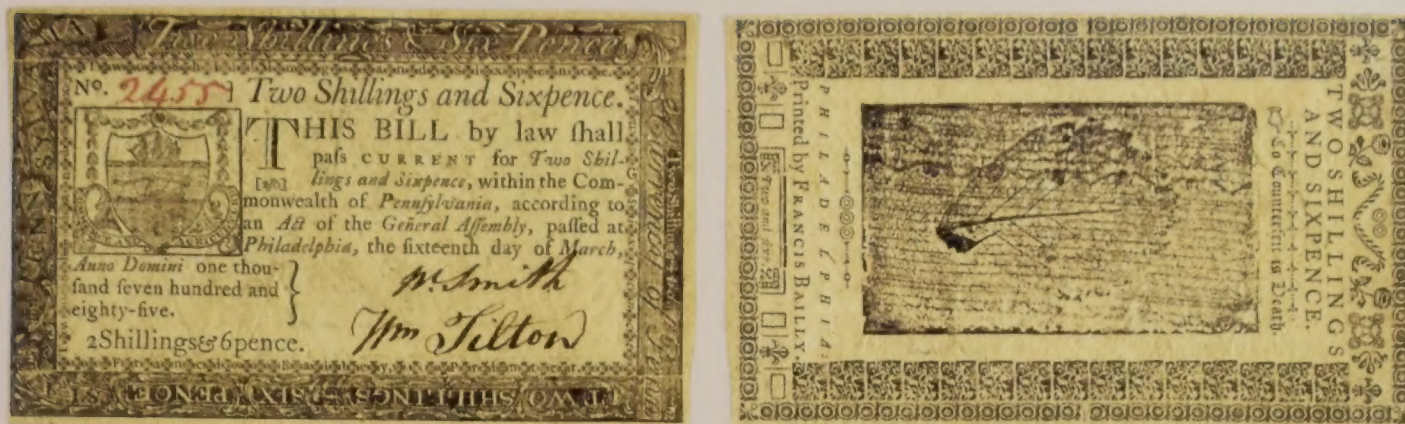 Two Shillings & Six Pence
No. 2455
Two Shillings and Sixpence.
THIS BILL by law ſhall
paſs CURRENT for Two Shil-
lings and Sixpence, within the Com-
monwealth of Pennſylvania, according to
an Act of the General Aſſembly, paſſed at
Philadelphia, the ſixteenth day of March,
Anno Domini one thou-
ſand ſeven hundred and
eighty-five.
2Shillings&6pence.
W. Smith
Wm Tilton
TWO SHILLINGS & SIX PENCE
TWO SHILLINGS
AND SIXPENCE.
To Counterfeit is Death.
PHILADELPHIA:
Printed by FRANCIS BAILLY.